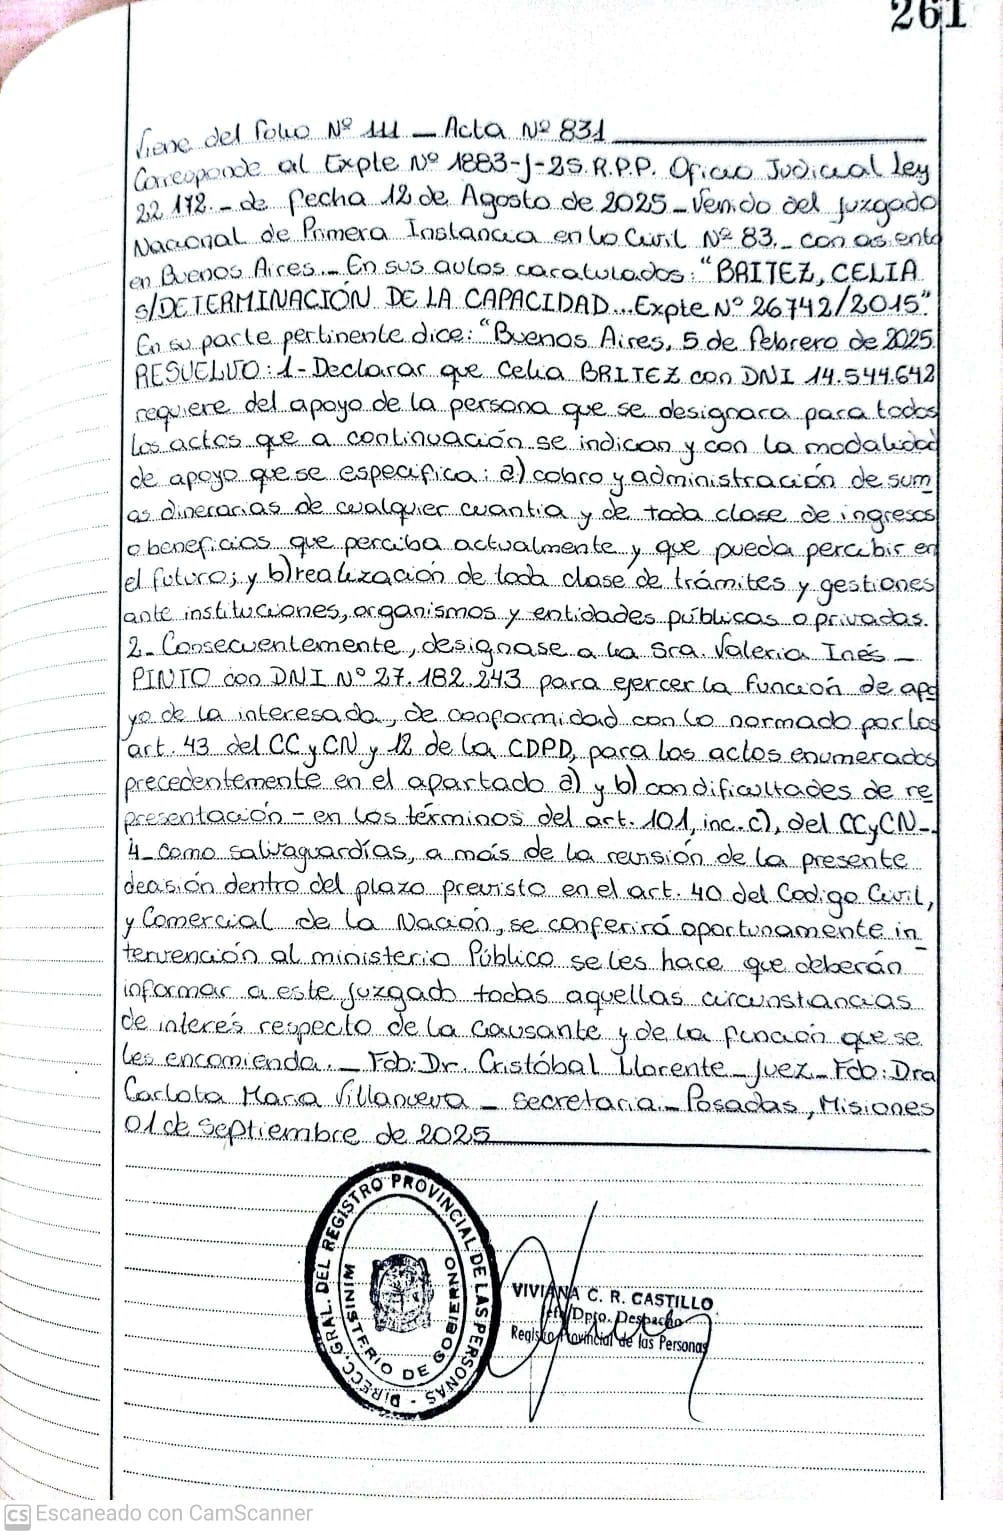 261
Viene del folio Nº 111 _ Acta Nº 831
Corresponde al Expte Nº 1883-J-25.R.P.P. Oficio Judicial Ley
22 172._ de fecha 12 de Agosto de 2025_Venido del juzgado
Nacional de Primera Instancia en lo Civil Nº 83._ con asento
en Buenos Aires._ En sus autos caratulados: "BRITEZ, CELIA
s/DETERMINACIÓN DE LA CAPACIDAD...Expte Nº 26742/2015".
En su parte pertinente dice: "Buenos Aires, 5 de febrero de 2025.
RESUELVO: 1-Declarar que Celia BRITEZ con DNI 14.544.642
requiere del apoyo de la persona que se designara para todos
los actos que a continuación se indican y con la modalidad
de apoyo que se especifica: a) cobro y administración de sum
as dinerarias de cualquier cuantia y de toda clase de ingresos
o beneficios que perciba actualmente y que pueda percibir en
el futuro; y b) realización de toda clase de trámites y gestiones
ante instituciones, organismos y entidades públicas o privadas.
2_ Consecuentemente, designase a la Sra. Valeria Inés _
PINTO con DNI Nº 27.182.243 para ejercer la función de apo
yo de la interesada, de conformidad con lo normado por los
art. 43 del CC y CN y 12 de la CDPD, para los actos enumerados
precedentemente en el apartado a) y b) con dificultades de re
presentación - en los términos del art. 101, inc. c), del CCyCN-.
4_ como salvaguardías, a más de la revisión de la presente
decisión dentro del plazo previsto en el art. 40 del Codigo Civil,
y Comercial de la Nación, se conferirá oportunamente in_
tervención al ministerio Público se les hace que deberán
informar a este juzgado todas aquellas circunstancias
de interés respecto de la causante y de la función que se
les encomienda._ Fdo: Dr. Cristóbal Llorente_Juez_Fdo: Dra
Carlota Maria Villanueva _ Secretaria._ Posadas, Misiones
01 de Septiembre de 2025
DIRECC. GRAL. DEL REGISTRO PROVINCIAL DE LAS PERSONAS -
MINISTERIO DE GOBIERNO
VIVIANA C. R. CASTILLO
Dpto. Despacho
Registro Provincial de las Personas
CS Escaneado con CamScanner